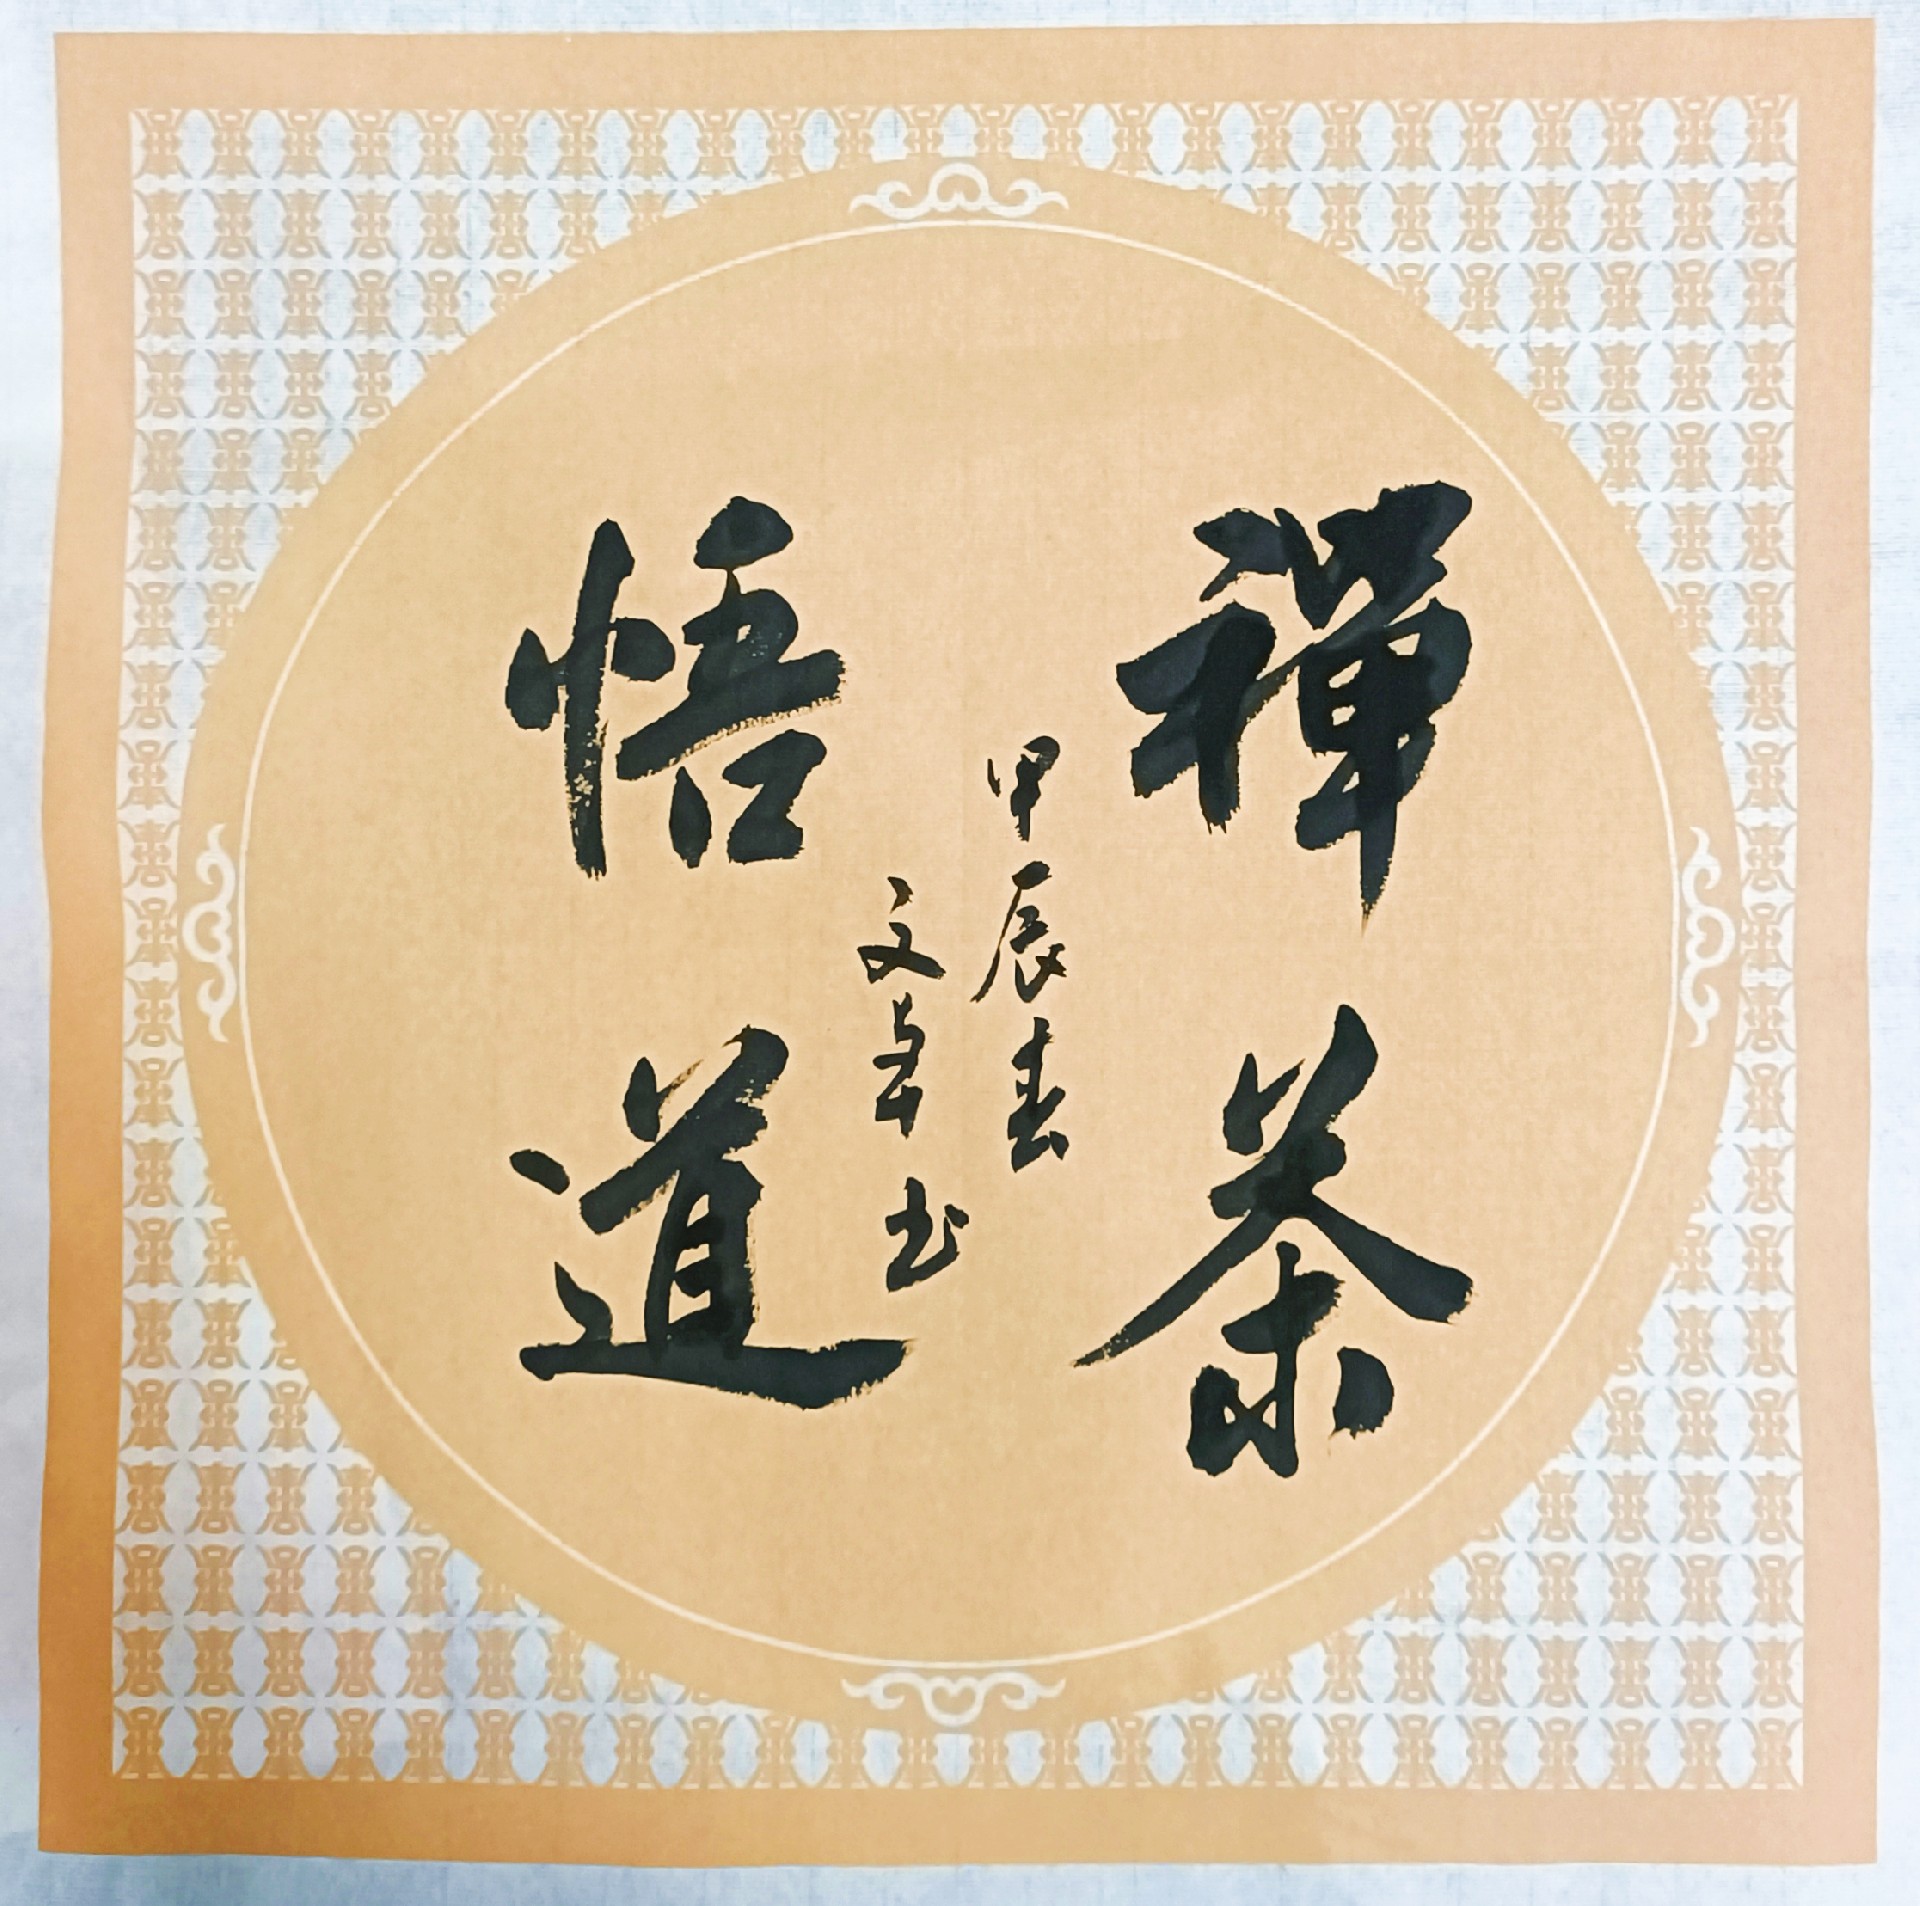 禪茶
悟道
甲辰春
文章书